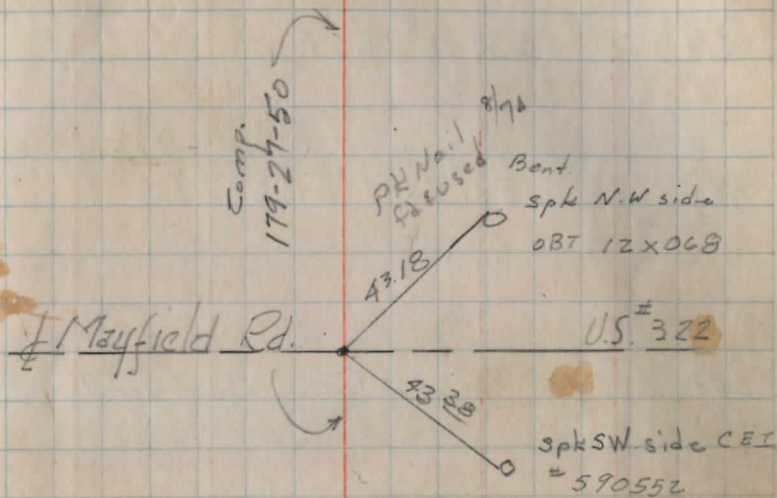 Comp.
179-27-50
8/71
PK Nail
Bent
spk N.W side
OBT 12X068
43.18
℄ Mayfield Rd.
U.S. # 322
43.38
spk SW side CEI
# 590552